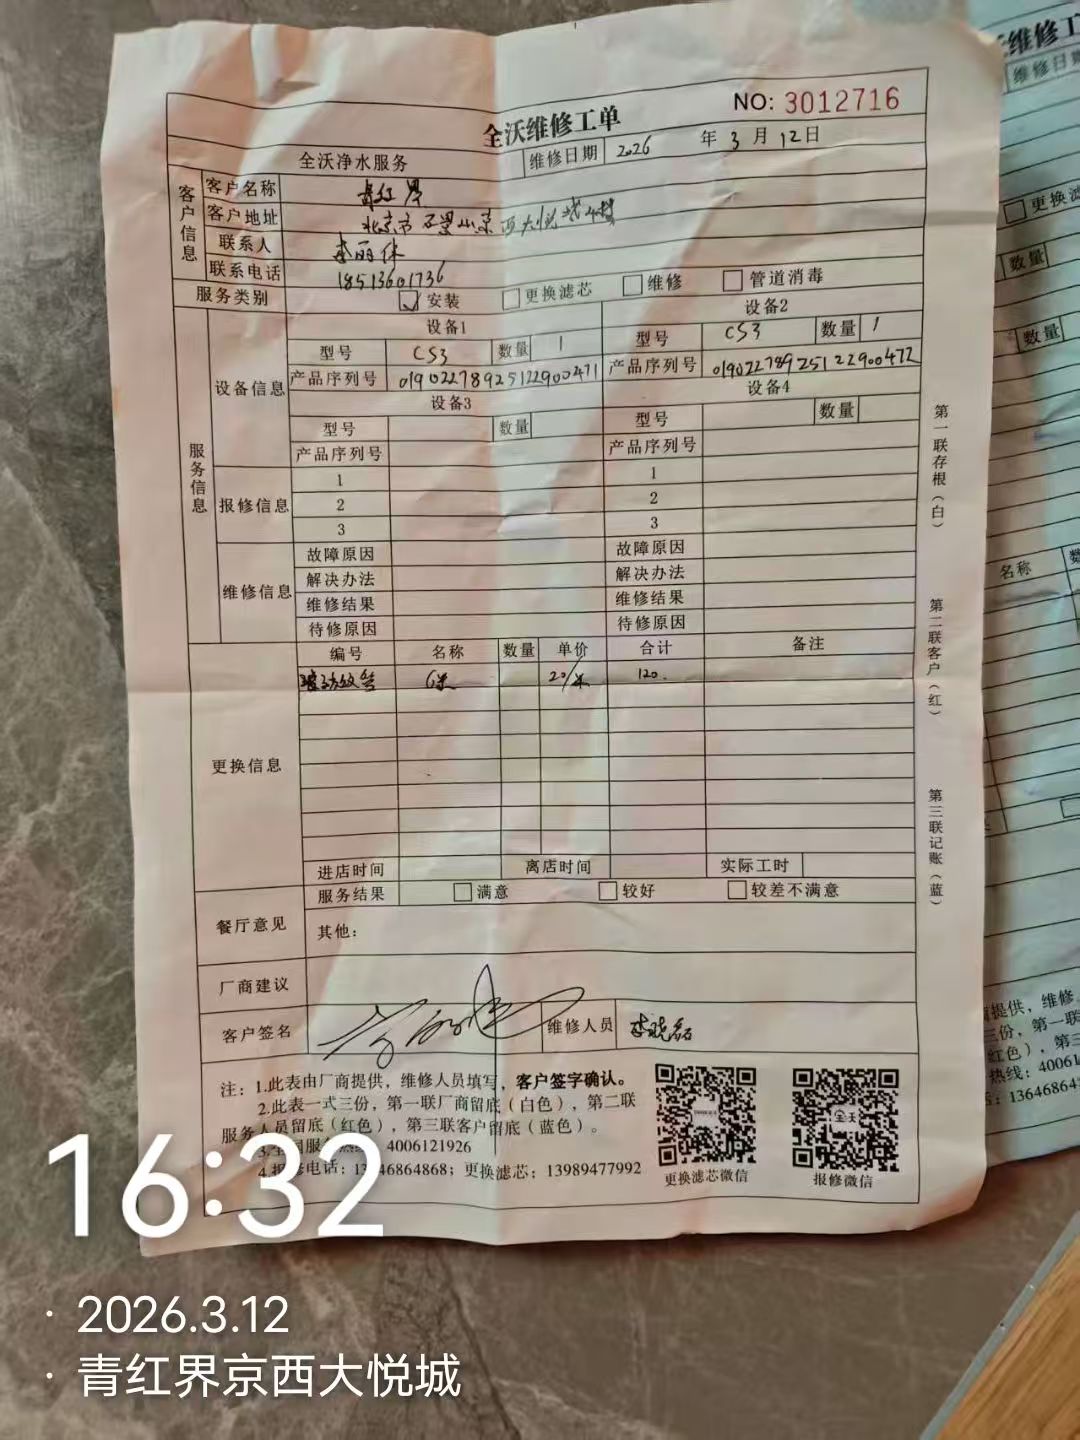 NO: 3012716
全沃维修工单
全沃净水服务 维修日期 2026 年 3 月 12日
客户信息
客户名称 青红界
客户地址 北京市石景山京西大悦城4楼
联系人 李丽
联系电话 18513601736
服务类别 安装 更换滤芯 维修 管道消毒
服务信息
设备信息
设备1 设备2
型号 CS3 数量 1 型号 CS3 数量 1
产品序列号 01902278925122900471 产品序列号 01902278925122900472
设备3 设备4
型号 数量 型号 数量
产品序列号 产品序列号
报修信息
1 1
2 2
3 3
维修信息
故障原因 故障原因
解决办法 解决办法
维修结果 维修结果
待修原因 待修原因
更换信息
编号 名称 数量 单价 合计 备注
6米 20/米 120.
进店时间 离店时间 实际工时
餐厅意见
服务结果 满意 较好 较差不满意
其他:
厂商建议
客户签名 维修人员 李晓磊
注: 1.此表由厂商提供，维修人员填写，客户签字确认。
2.此表一式三份，第一联厂商留底（白色），第二联
服务人员留底（红色），第三联客户留底（蓝色）。
3.全国服务热线: 4006121926
4.报修电话: 13646864868; 更换滤芯: 13989477992
更换滤芯微信 报修微信
全沃
第一联存根（白）
第二联客户（红）
第三联记账（蓝）
维修工
维修日期
更换滤
数量
数量
名称 数
提供，维修
三份，第一联
红色），第三
热线: 40061
: 13646864
16:32
· 2026.3.12
· 青红界京西大悦城